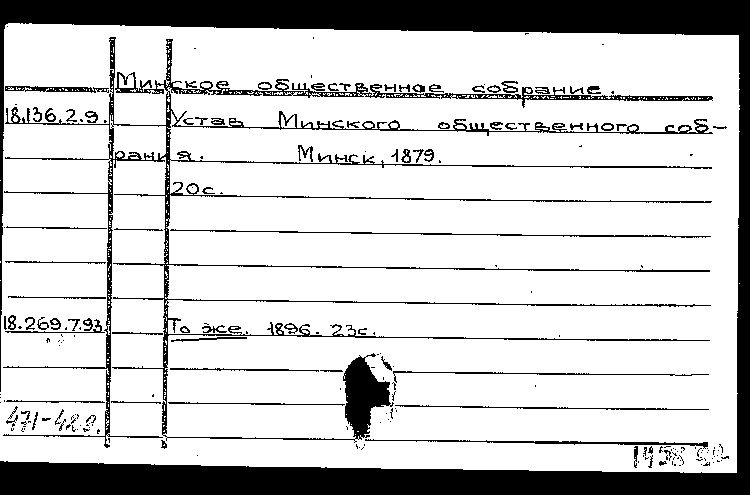 Минское общественное собрание.
18.136.2.9. Устав Минского общественного соб-
рания. Минск, 1879.
20с.
18.269.7.93. То же. 1896. 23с.
471-429.